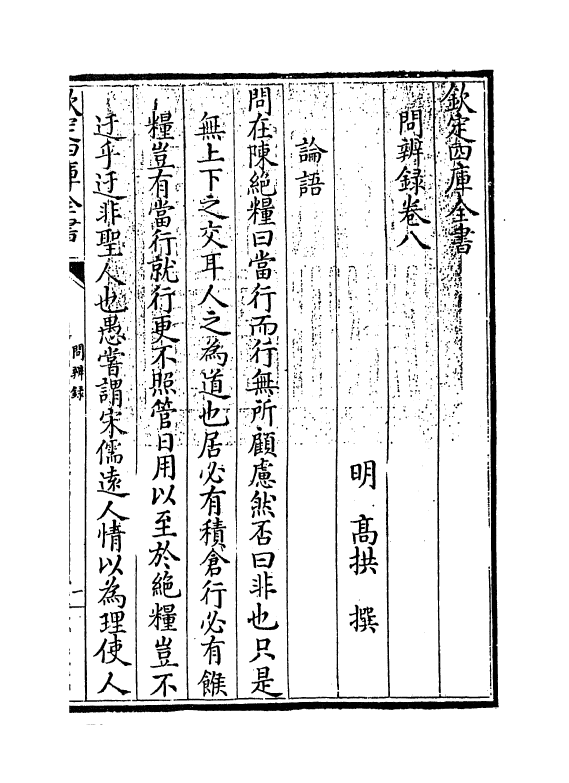 欽定四庫全書
問辨録卷八
明 髙拱 撰
論語
問在陳絶糧曰當行而行無所顧慮然否曰非也只是
無上下之交耳人之為道也居必有積倉行必有餱
糧豈有當行就行更不照管日用以至於絶糧豈不
迂乎迂非聖人也愚嘗謂宋儒逺人情以為理使人
欽定四庫全書
問辨録
一